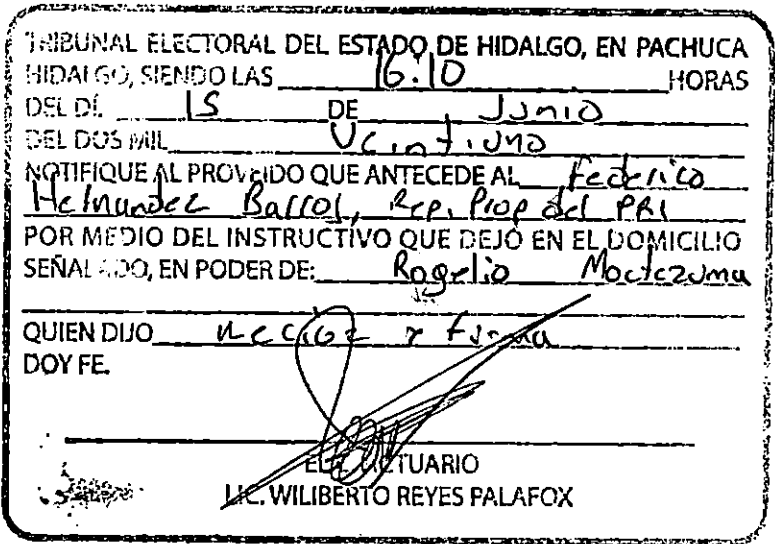 TRIBUNAL ELECTORAL DEL ESTADO DE HIDALGO, EN PACHUCA
HIDALGO, SIENDO LAS 16:10 HORAS
DEL DÍA 15 DE Junio
DEL DOS MIL Veintiuno
NOTIFIQUE AL PROVEIDO QUE ANTECEDE AL Federico
Hernandez Barros, Rep. Prop del PRI
POR MEDIO DEL INSTRUCTIVO QUE DEJÓ EN EL DOMICILIO
SEÑALADO, EN PODER DE: Rogelio Moctezuma
QUIEN DIJO recibe y firma
DOY FE.
EL C. ACTUARIO
LIC. WILIBERTO REYES PALAFOX